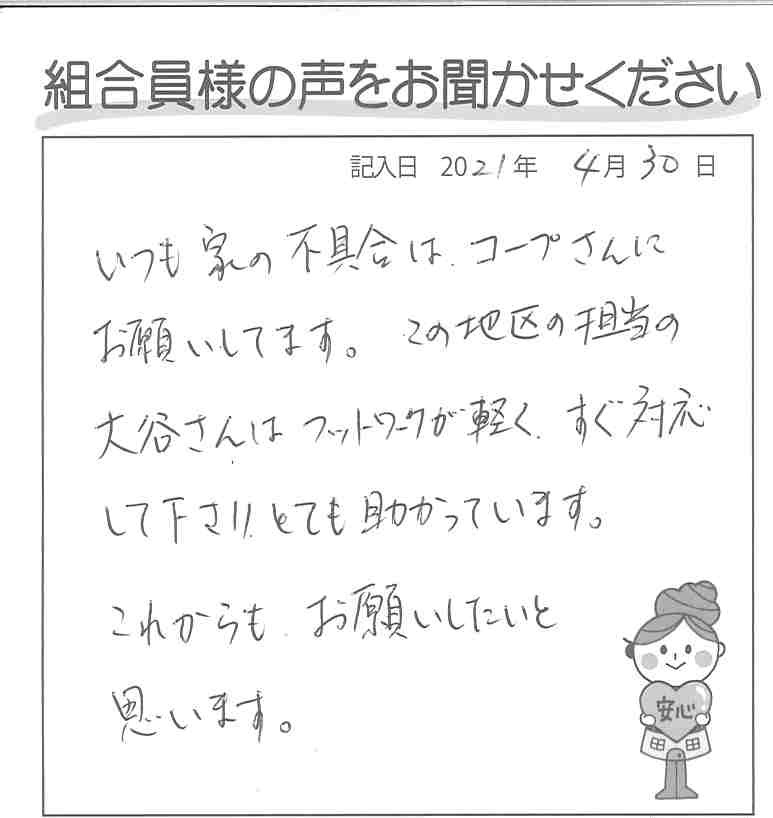 組合員様の声をお聞かせください
記入日 2021年 4月30日
いつも家の不具合は、コープさんに
お願いしてます。この地区の担当の
大谷さんはフットワークが軽く、すぐ対応
して下さりとても助かっています。
これからも、お願いしたいと
思います。
安心